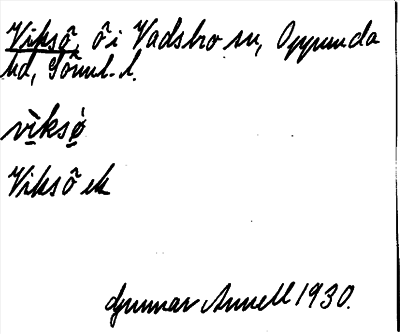 Viksö, ö i Vadsbro sn, Oppunda
hd, Söml. l.
vìksø̀
Viksö ek
Gunnar Annell 1930.